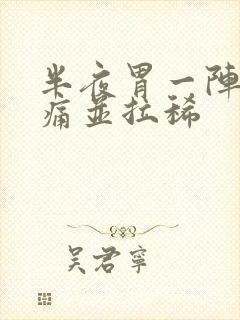 半夜胃一陣
痛並拉稀
吳君寧